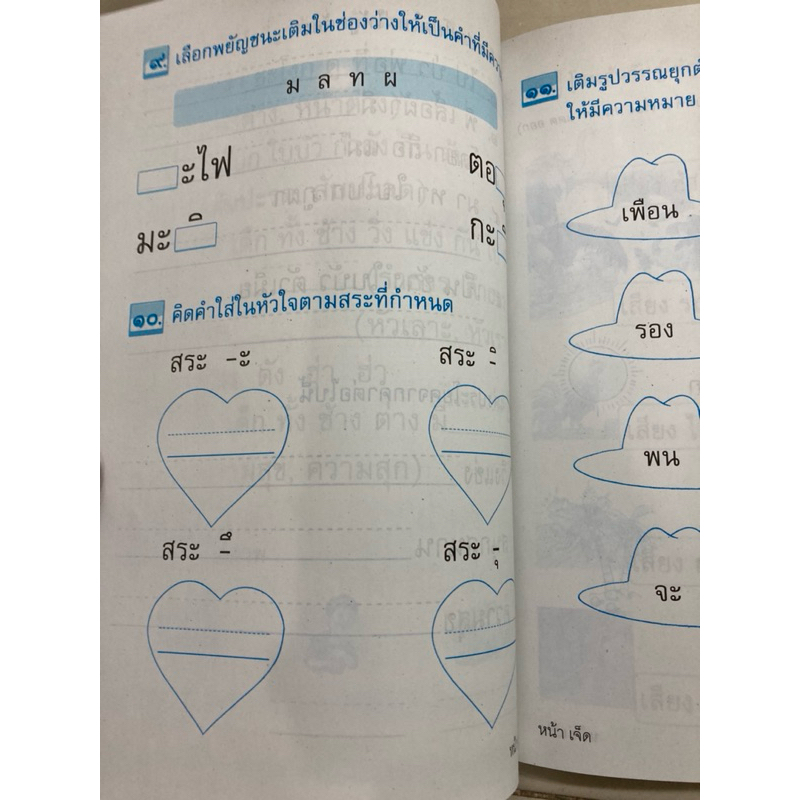 ๙. เลือกพยัญชนะเติมในช่องว่างให้เป็นคำที่มีความ
ม ล ท ผ
ะไฟ ตอ
มะ ิ กะ
๑๐. คิดคำใส่ในหัวใจตามสระที่กำหนด
สระ -ะ สระ -ิ
สระ -ึ สระ -ุ
๑๑. เติมรูปวรรณยุกต์
ให้มีความหมาย
เพือน
รอง
พน
จะ
หน้า เจ็ด